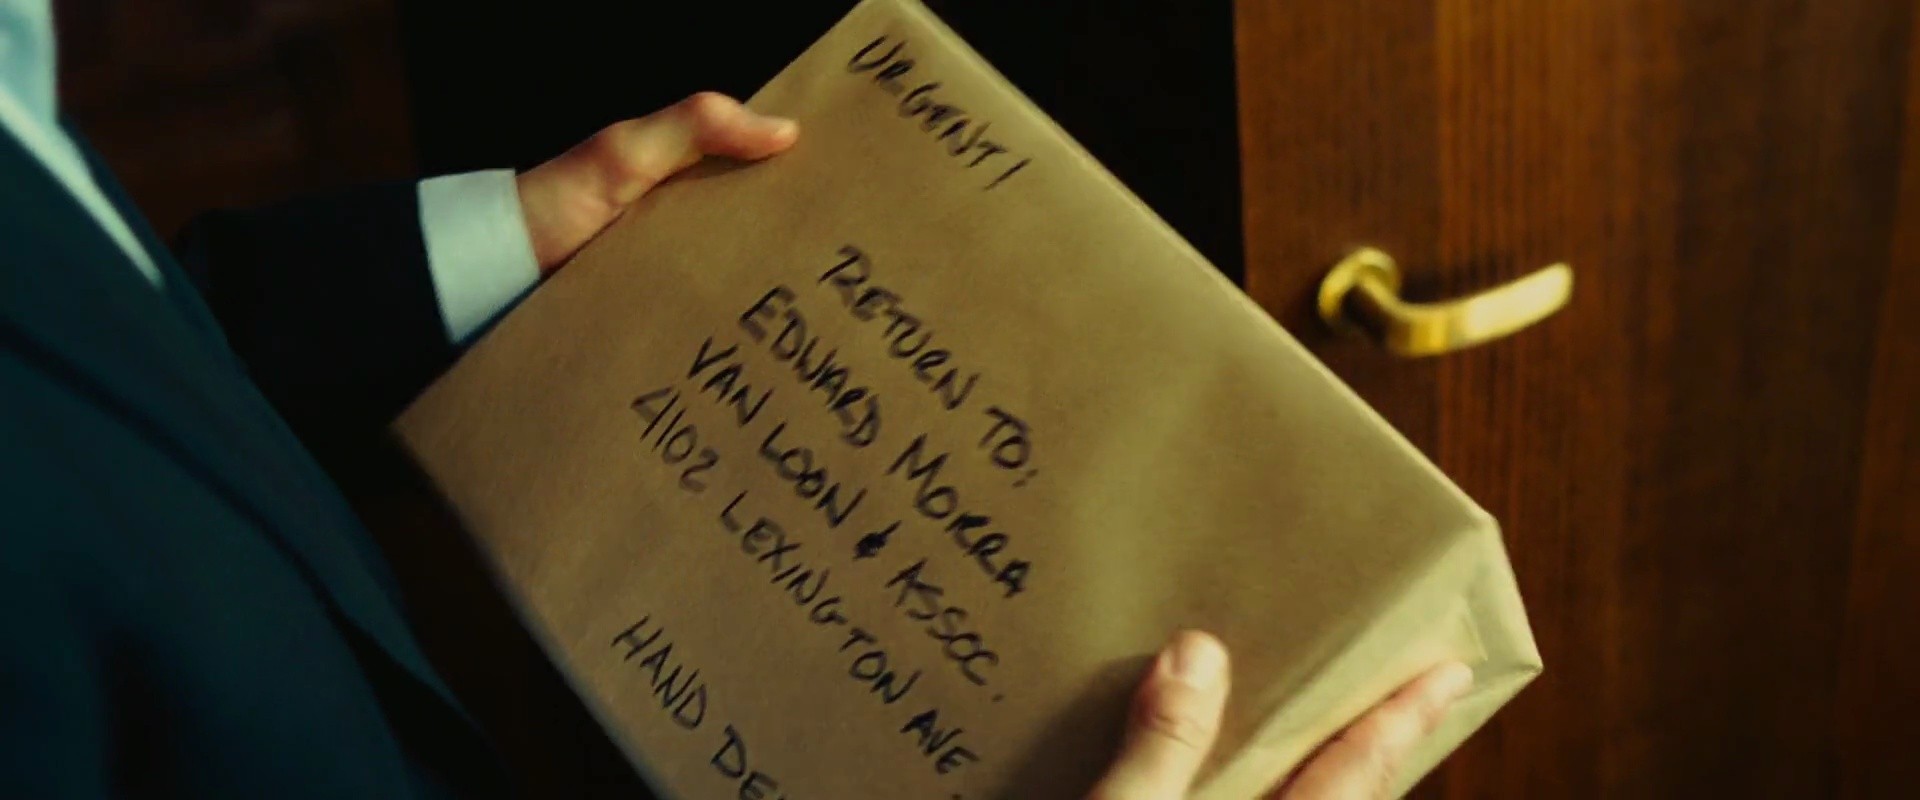 URGENT!
RETURN TO:
EDWARD MORRA
VAN LOON & ASSOC.
4102 LEXINGTON AVE.
HAND